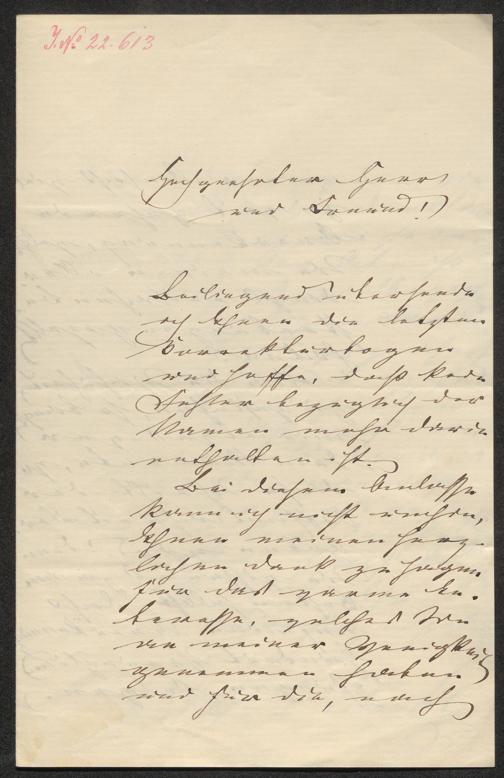 J. No 22.613
Hochgeehrter Herr
und Freund!
Beiliegend übersende
ich Ihnen die letzten
Korrekturbogen
und hoffe, daß kein
Fehler bezüglich der
Namen mehr darin
enthalten ist.
Bei diesem Anlasse
kann ich nicht umhin,
Ihnen meinen herz-
lichen Dank zu sagen
für das warme In-
teresse, welches Sie
an meiner Wenigkeit
genommen haben
und für die, nach